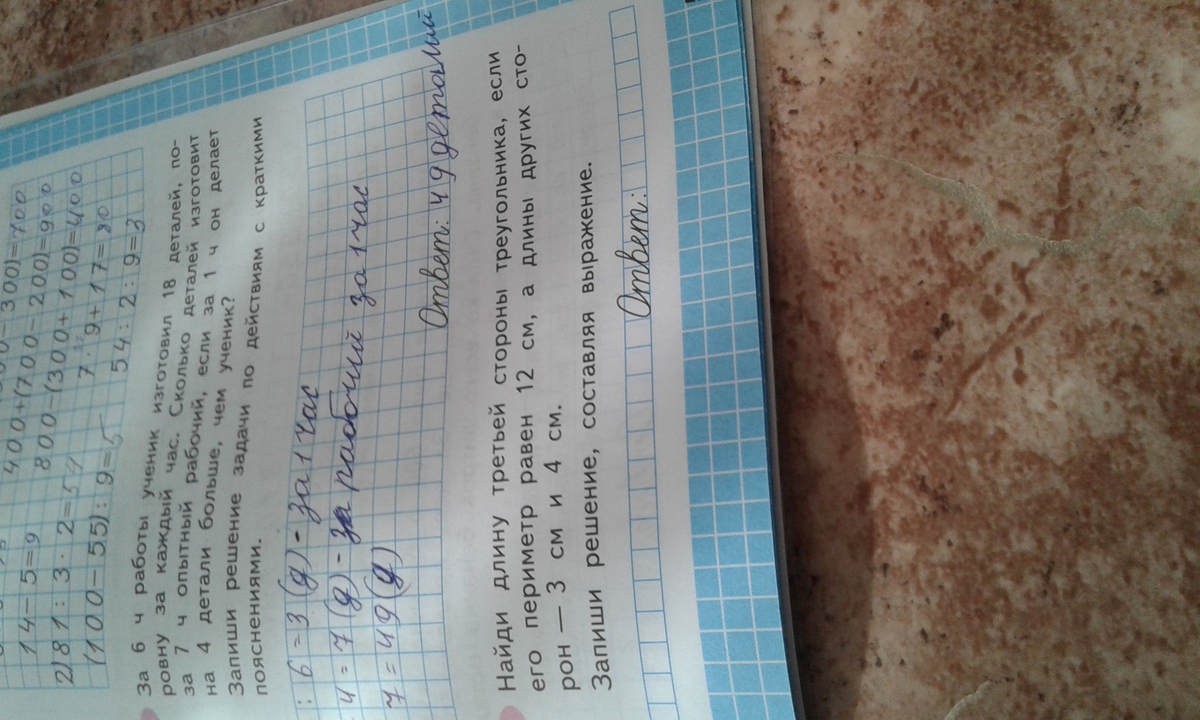 300)=700
400+(700-200)=900
14-5=9 800-(300+100)=400
2)81:3·2=54 7·9+17=80
(100-55):9=5 54:2:9=3
За 6 ч работы ученик изготовил 18 деталей, по-
ровну за каждый час. Сколько деталей изготовит
за 7 ч опытный рабочий, если за 1 ч он делает
на 4 детали больше, чем ученик?
Запиши решение задачи по действиям с краткими
пояснениями.
:6=3(д)-за 1 час
4=7(д)-рабочий за 1 час
7=49(д)
Ответ: 49 деталий
Найди длину третьей стороны треугольника, если
его периметр равен 12 см, а длины других сто-
рон — 3 см и 4 см.
Запиши решение, составляя выражение.
Ответ: